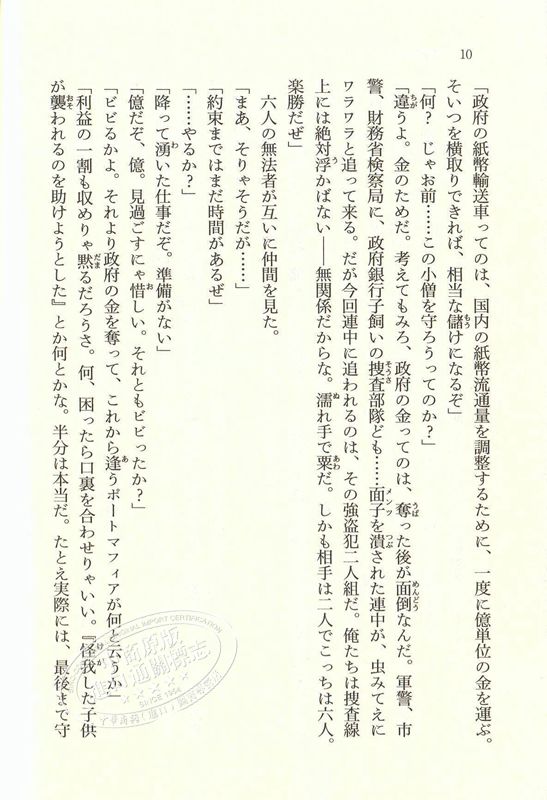 10
「政府の紙幣輸送車ってのは、国内の紙幣流通量を調整するために、一度に億単位の金を運ぶ。
そいつを横取りできれば、相当な儲けになるぞ」
「何？　じゃお前……この小僧を守ろうってのか？」
「違うよ。金のためだ。考えてもみろ、政府の金ってのは、奪った後が面倒なんだ。軍警、市
警、財務省検察局に、政府銀行子飼いの捜査部隊ども……面子を潰された連中が、虫みてえに
ワラワラと追って来る。だが今回連中に追われるのは、その強盗犯二人組だ。俺たちは捜査線
上には絶対浮かばない――無関係だからな。濡れ手で粟だ。しかも相手は二人でこっちは六人。
楽勝だぜ」
六人の無法者が互いに仲間を見た。
「まあ、そりゃそうだが……」
「約束まではまだ時間があるぜ」
「……やるか？」
「降って湧いた仕事だぞ。準備がない」
「億だぞ、億。見過ごすにゃ惜しい。それともビビったか？」
「ビビるかよ。それより政府の金を奪って、これから逢うポートマフィアが何と云うか」
「利益の一割も収めりゃ黙るだろうさ。何、困ったら口裏を合わせりゃいい。『怪我した子供
が襲われるのを助けようとした』とか何とかな。半分は本当だ。たとえ実際には、最後まで守